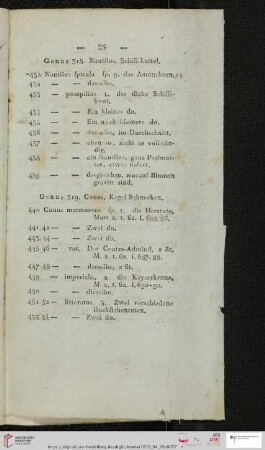 — 25 —
Genus 318. Nautilus, Schiff-kuttel.
452 Nautilus spirula sp. 9. das Amonshorn,
— — dasselbe,
433 — pompilius 1. das dicke Schiff-
boot,
434 — — Ein kleiner do.
435 — — Ein noch kleinerer do.
436 — — dasselbe, im Durchschnitt.
437 — — eben so, nicht so vollstän-
dig.
438 — — ein Nautilus, ganz Perlmut-
ter, etwas defect.
439 — — desgleichen, worauf Blumen
gravirt sind.
Genus 319. Conus, Kegel Schnecken.
440 Conus marmoreus sp. 1. die Herztute,
Mart 2. t. 62. f. 685. 86.
441. 42 — — Zwei do.
443. 44 — — Zwei do.
445. 46 — var. Der Contre-Admiral, a 80,
M, 2, t. 62. f. 687. 88.
447. 48 — — derselbe, a 81.
449 — imperialis, 2. die Kayserkrone,
M, 2, t. 62. f. 690-92.
450 — — dieselbe.
451. 52 — litteratus, 3. Zwei verschiedene
Buchstabentuten.
453. 54 — — Zwei do.